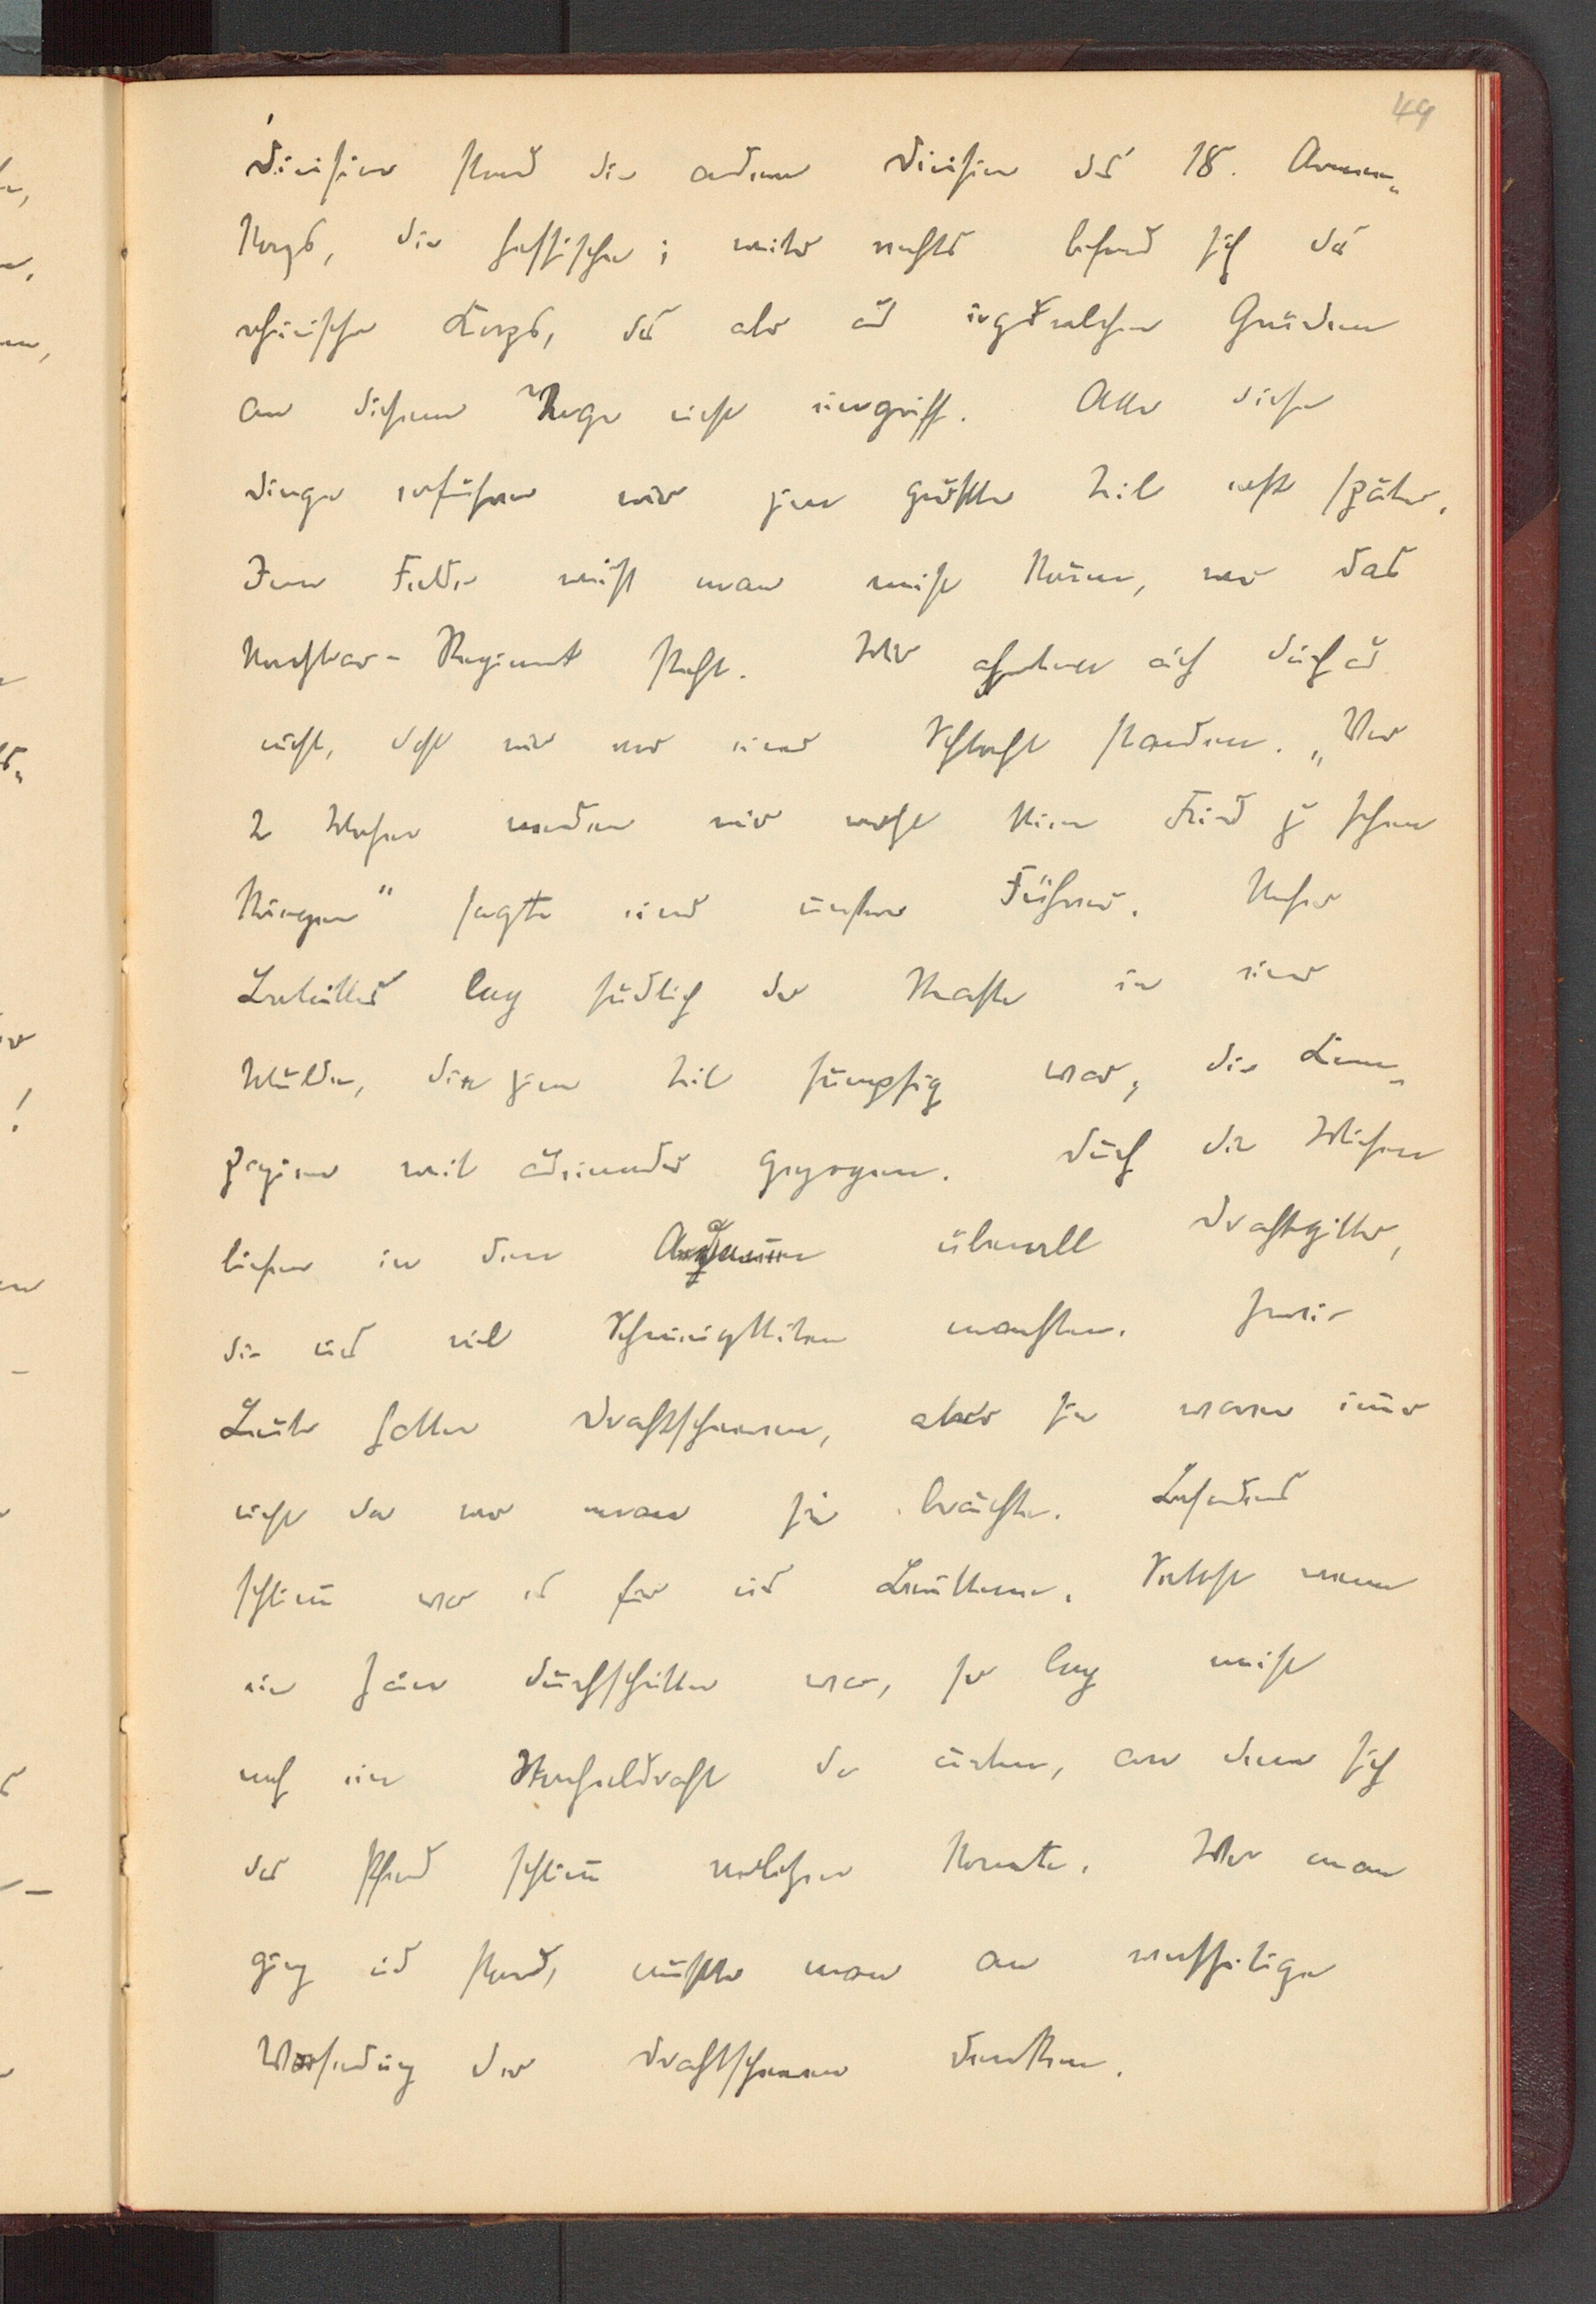 49
Division stand die andere Division des 18. Armee-
Korps, die hessische; weiter rechts befand sich das
rheinische Korps, das aber aus irgendwelchen Gründen
an diesem Tage nicht eingriff. Alle diese
Dinge erfuhren wir zum größten Teil erst später.
Im Felde weiß man meist kaum, wo das
Nachbar-Regiment steht. Wir ahnten auch durchaus
nicht, daß wir vor einer Schlacht standen. „Vor
2 Wochen werden wir wohl kein Feind zu sehen
kriegen" sagte einer unserer Führer. Unser
Bataillon lag südlich der Straße in einer
Mulde, die zum Teil sumpfig war, die Kom-
pagnien weit auseinander gezogen. Durch die Wiesen
liefen in den überall Drahtgitter,
die uns viel Schwierigkeiten machten. Zwei
Leute hatten Drahtscheren, aber sie waren immer
nicht da wo man sie brauchte. Besonders
schlimm war es für uns Berittene. Selbst wenn
ein Zaun durchschnitten war, so lag meist
noch ein Stacheldraht da unten, an dem sich
das Pferd schlimm verletzen konnte. Wo man
ging und stand, mußte man an rechtzeitige
Verwendung der Drahtscheren denken.